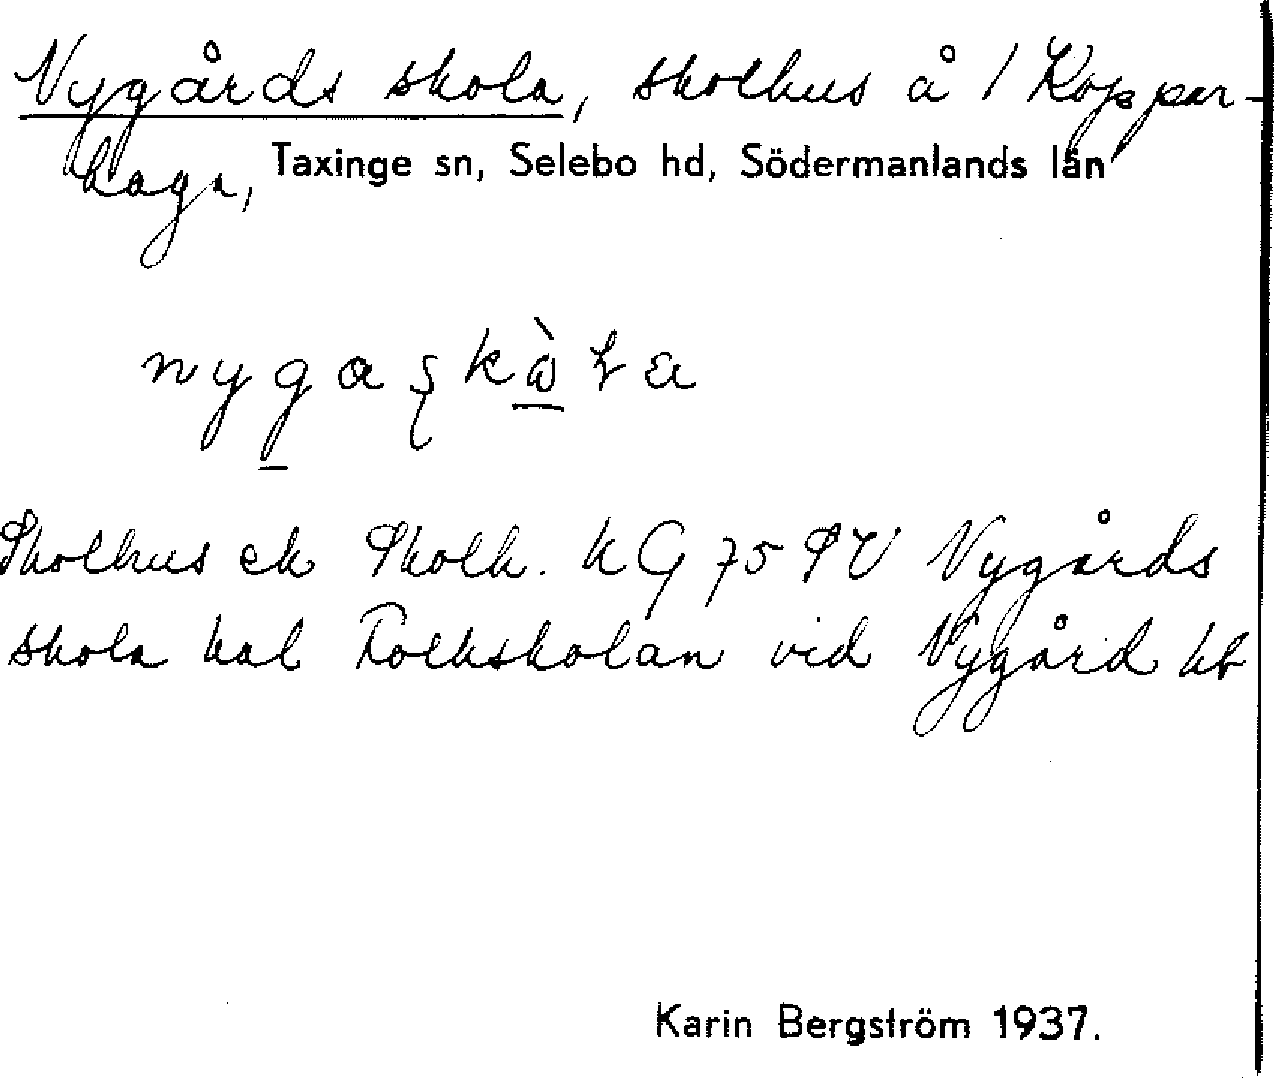 Nygårds skola, skolhus å 1 Koppar-
haga, Taxinge sn, Selebo hd, Södermanlands län
Skolhus ek Skolh. kG 75 SV Nygårds
skola hal Folkskolan vid Nygård kb
Karin Bergström 1937.